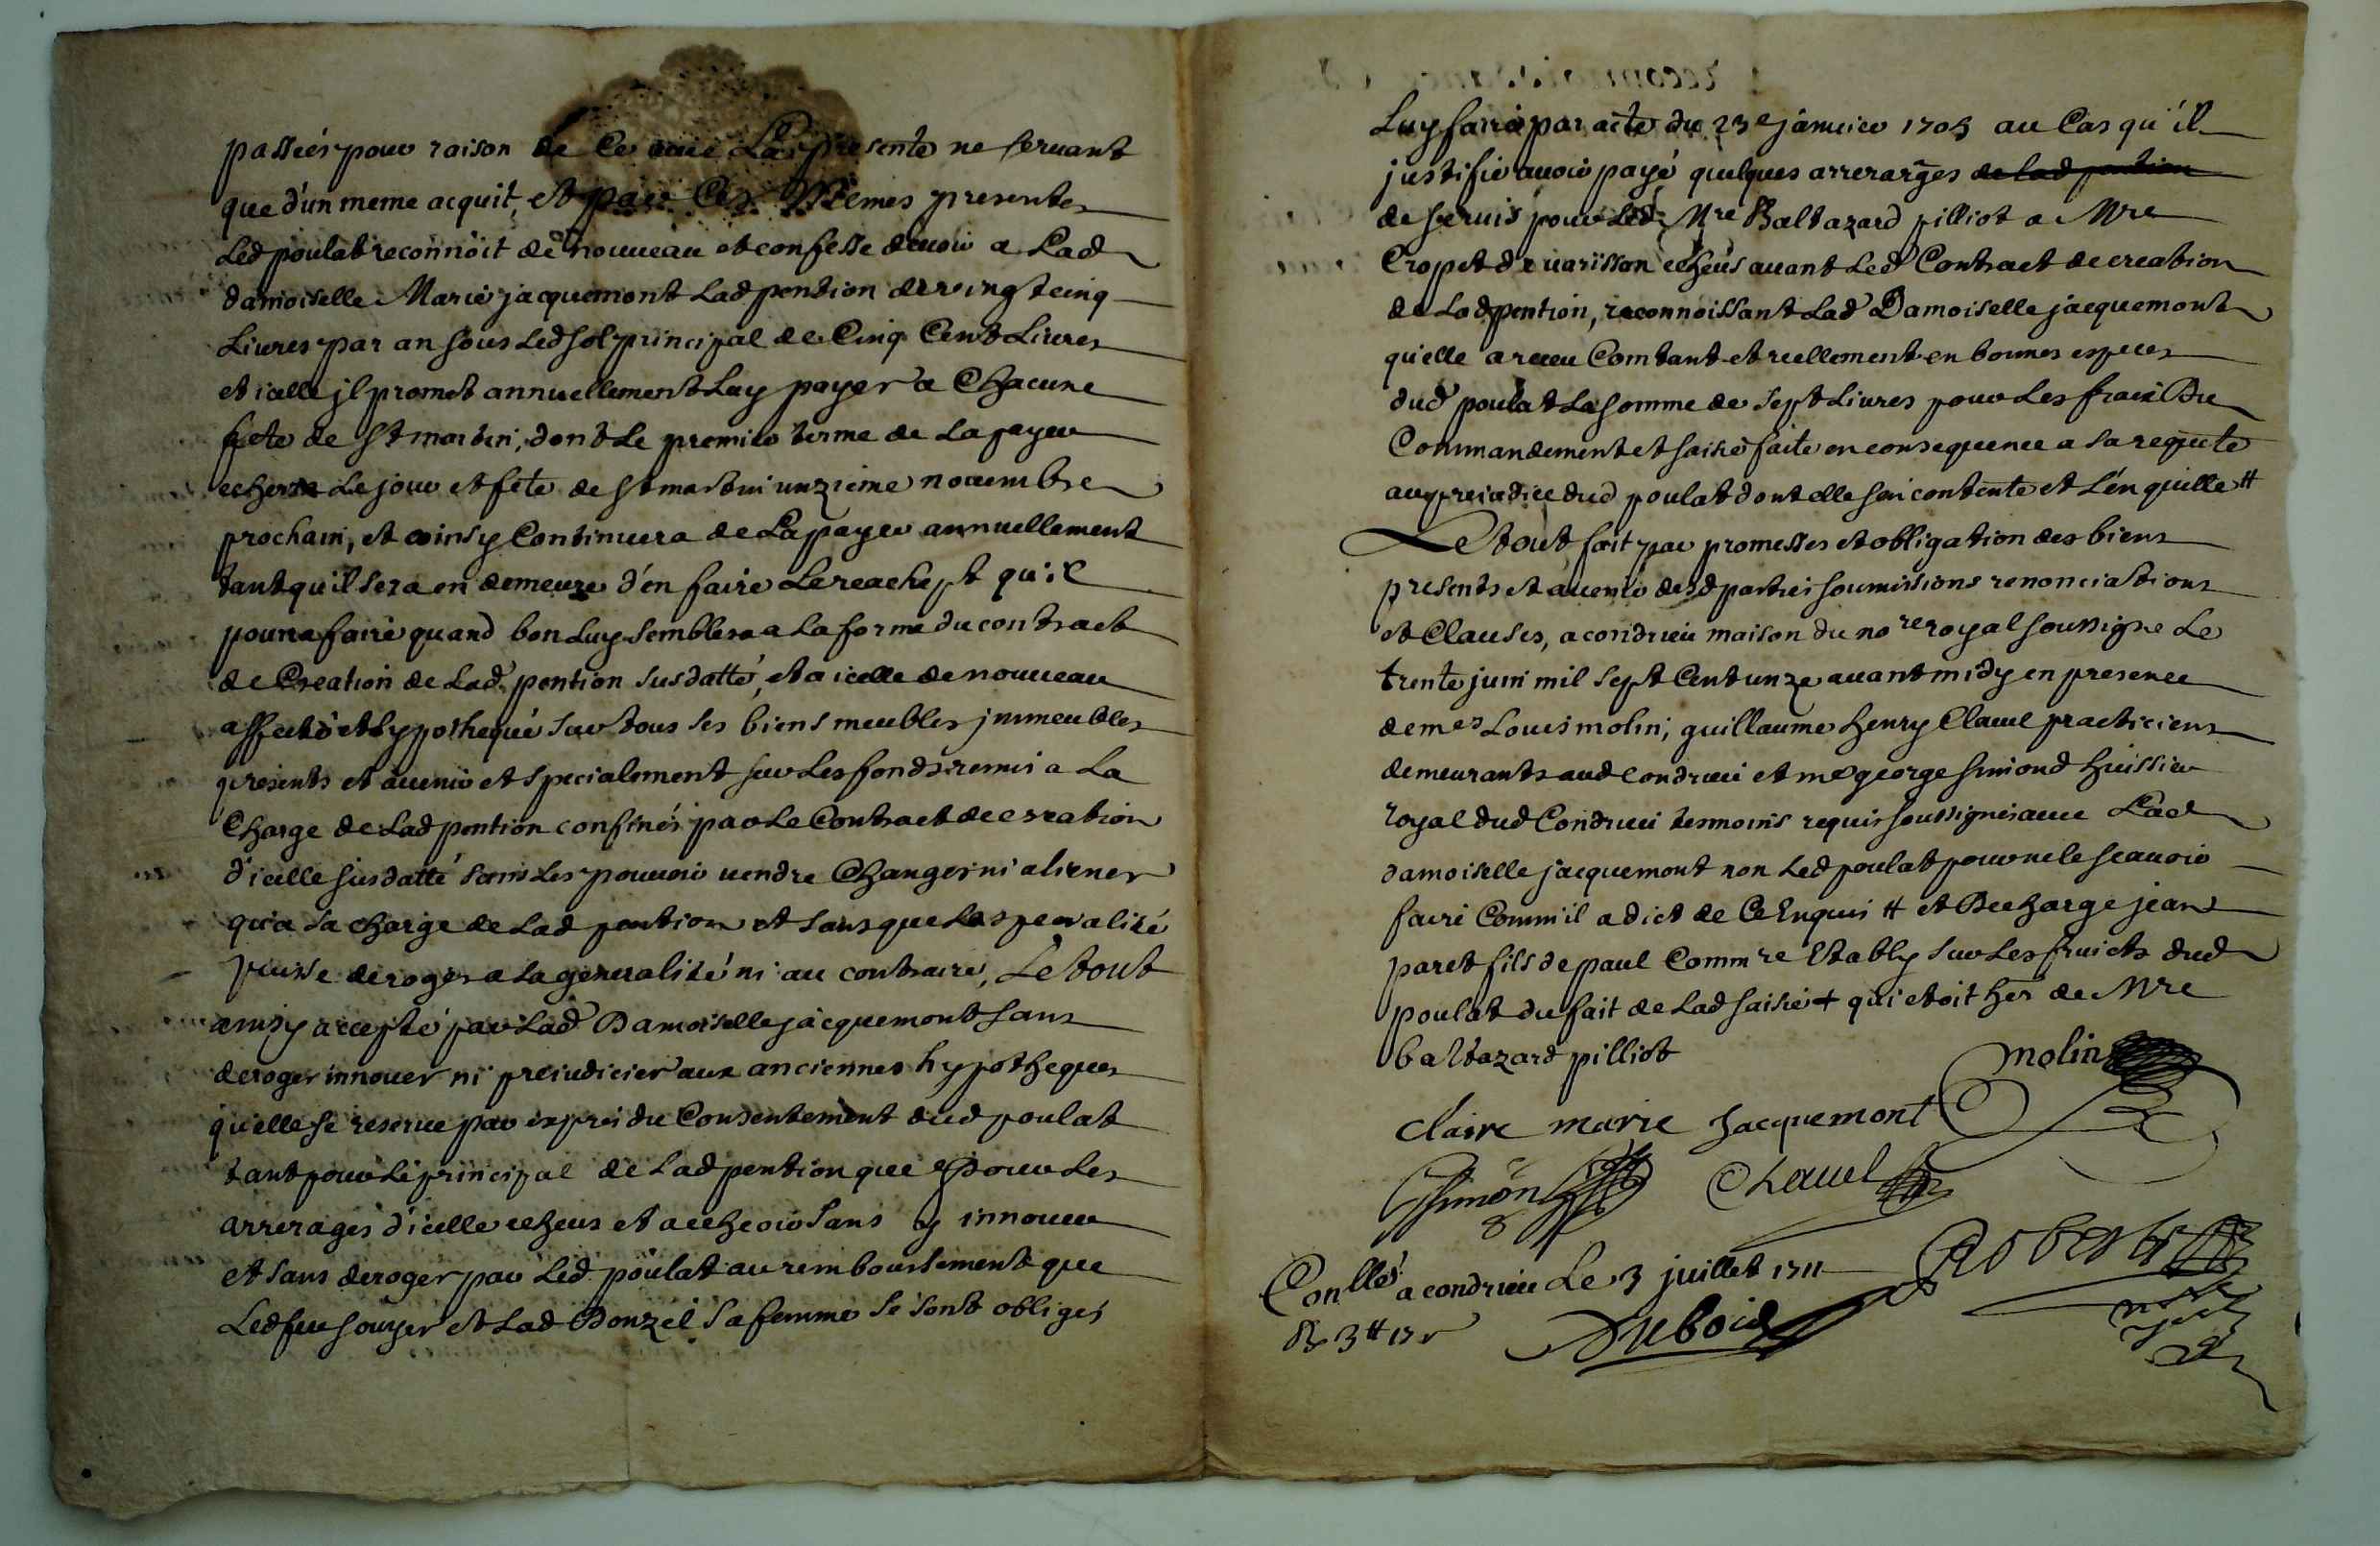 passées pour raison de ce avec La presente ne servant
que d'un meme acquit, et par Ces Memes presentes
Led poulat reconnoit de nouveau et confesse devoir a Lad
damoiselle Marie jacquemont Lad pention de vingt cinq
Livres par an sous Led sol principal de Cinq Cent Livres
et icelle jl promet annuellement Luy payer a Chacune
fete de St martin, dont Le premier terme de La payer
echerra Le jour et fete de St martin unzieme novembre
prochain, et ainsy Continuera de La payer annuellement
tant qu'il sera en demeure d'en faire Le reachept qu'il
pourra faire quand bon Luy semblera a La forme du contract
de Creation de Lad pention susdatté, et a icelle de nouveau
affecté et hypothequé sur tous ses biens meubles jmmeubles
presents et avenir et specialement sur Les fonds remis a La
Charge de Lad pention confinés par Le Contract de creation
d'icelle susdatté sans Les pouvoir vendre Changer ni aliener
qu'a La charge de Lad pention et sans que La specialité
puisse deroger a La generalité ni au contraire, Le tout
ainsy accepté par Lad Damoiselle jacquemont sans
deroger innover ni preiudicier aux anciennes hypotheques
qu'elle se reserve par exprès du Consentement dud poulat
tant pour Le principal de Lad pention que pour Les
arrerages d'icelle echeus et a echeoir sans y innover
et sans deroger par Led poulat au remboursement que
Led feu souyer et Lad Donzel sa femme se sont obligés
Luy faire par acte du 23e janvier 1705 au Cas qu'il
justifie avoir payé quelques arrerarges de lad pention
de servis pour Led Mre Baltazard pilliot a Mre
Cropet de varisson echeus avant Led Contract de creation
de Lad pention, reconnoissant Lad Damoiselle jacquemont
qu'elle a receu Comtant et reellement en bonnes especes
dud poulat La somme de sept Livres pour Les frais Du
Commandement et saisie faite en consequence a sa requete
au preiudice dud poulat dont elle sen contente et L'en quitte #
Le tout fait par promesses et obligation des biens
presents et avenir desd parties soumissions renonciations
et Clauses, a condrieu maison du nore royal soussigne Le
trente juin mil sept Cent unze avant midy en presence
de mes Louis molin, guillaume henry Clavel practiciens
demeurants aud condrieu et me george simond huissier
royal dud Condrieu tesmoins requis soussignés avec Lad
damoiselle jacquemont non Led poulat pour ne le scavoir
faire Comm'il a dict de Ce Enquis # et Decharge jean
paret fils de paul Commre Etably sur Les fruicts dud
poulat du fait de Lad saisie + qui etoit her de Mre
baltazard pilliot
molin
claire marie Jacquemont
Simon Chavel
Conllé a condrieu Le 3 juillet 1711 Robert
Dubois